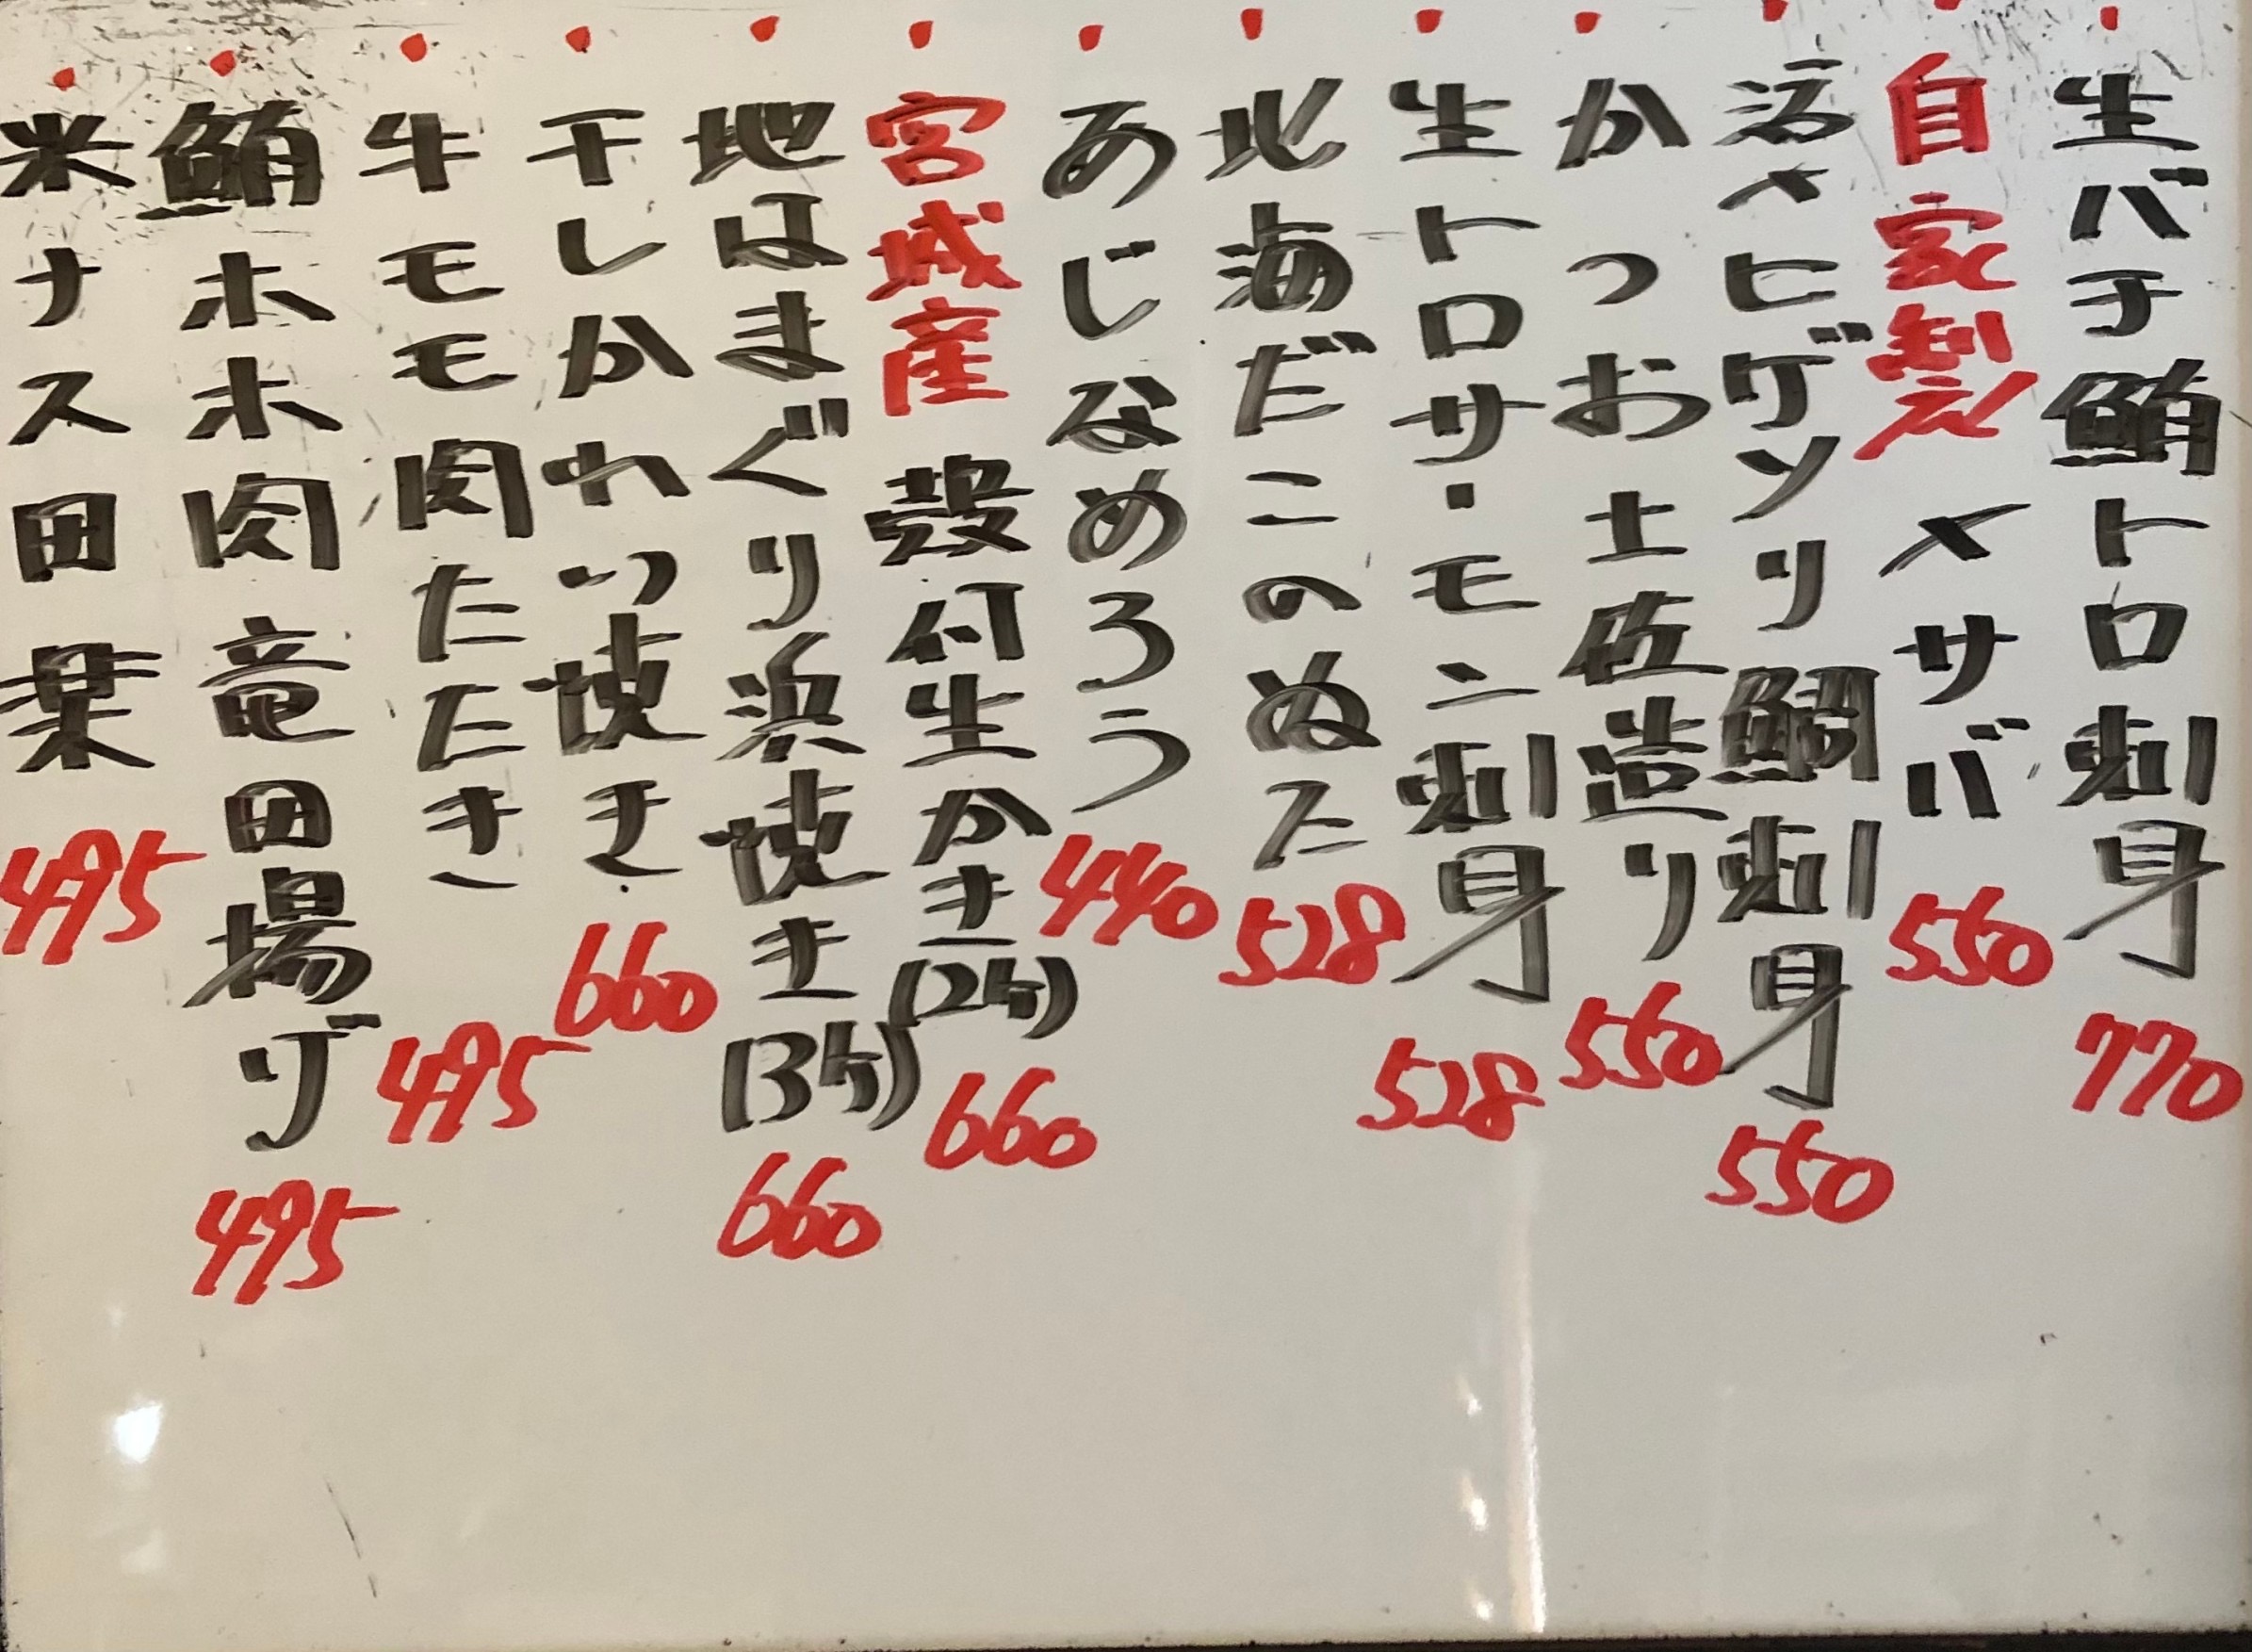 生バチ鮪トロ刺身 770
自家製 〆サバ 550
活〆ヒゲソリ鯛刺身 550
かつお土佐造り 550
生トロサーモン刺身 528
北海だこのぬた 528
あじなめろう 440
宮城産 殻付生かき(2ケ) 660
地はまぐり浜焼き(3ケ) 660
干しかれい焼き 660
牛モモ肉たたき 495
鮪ホホ肉竜田揚げ 495
米ナス田楽 495